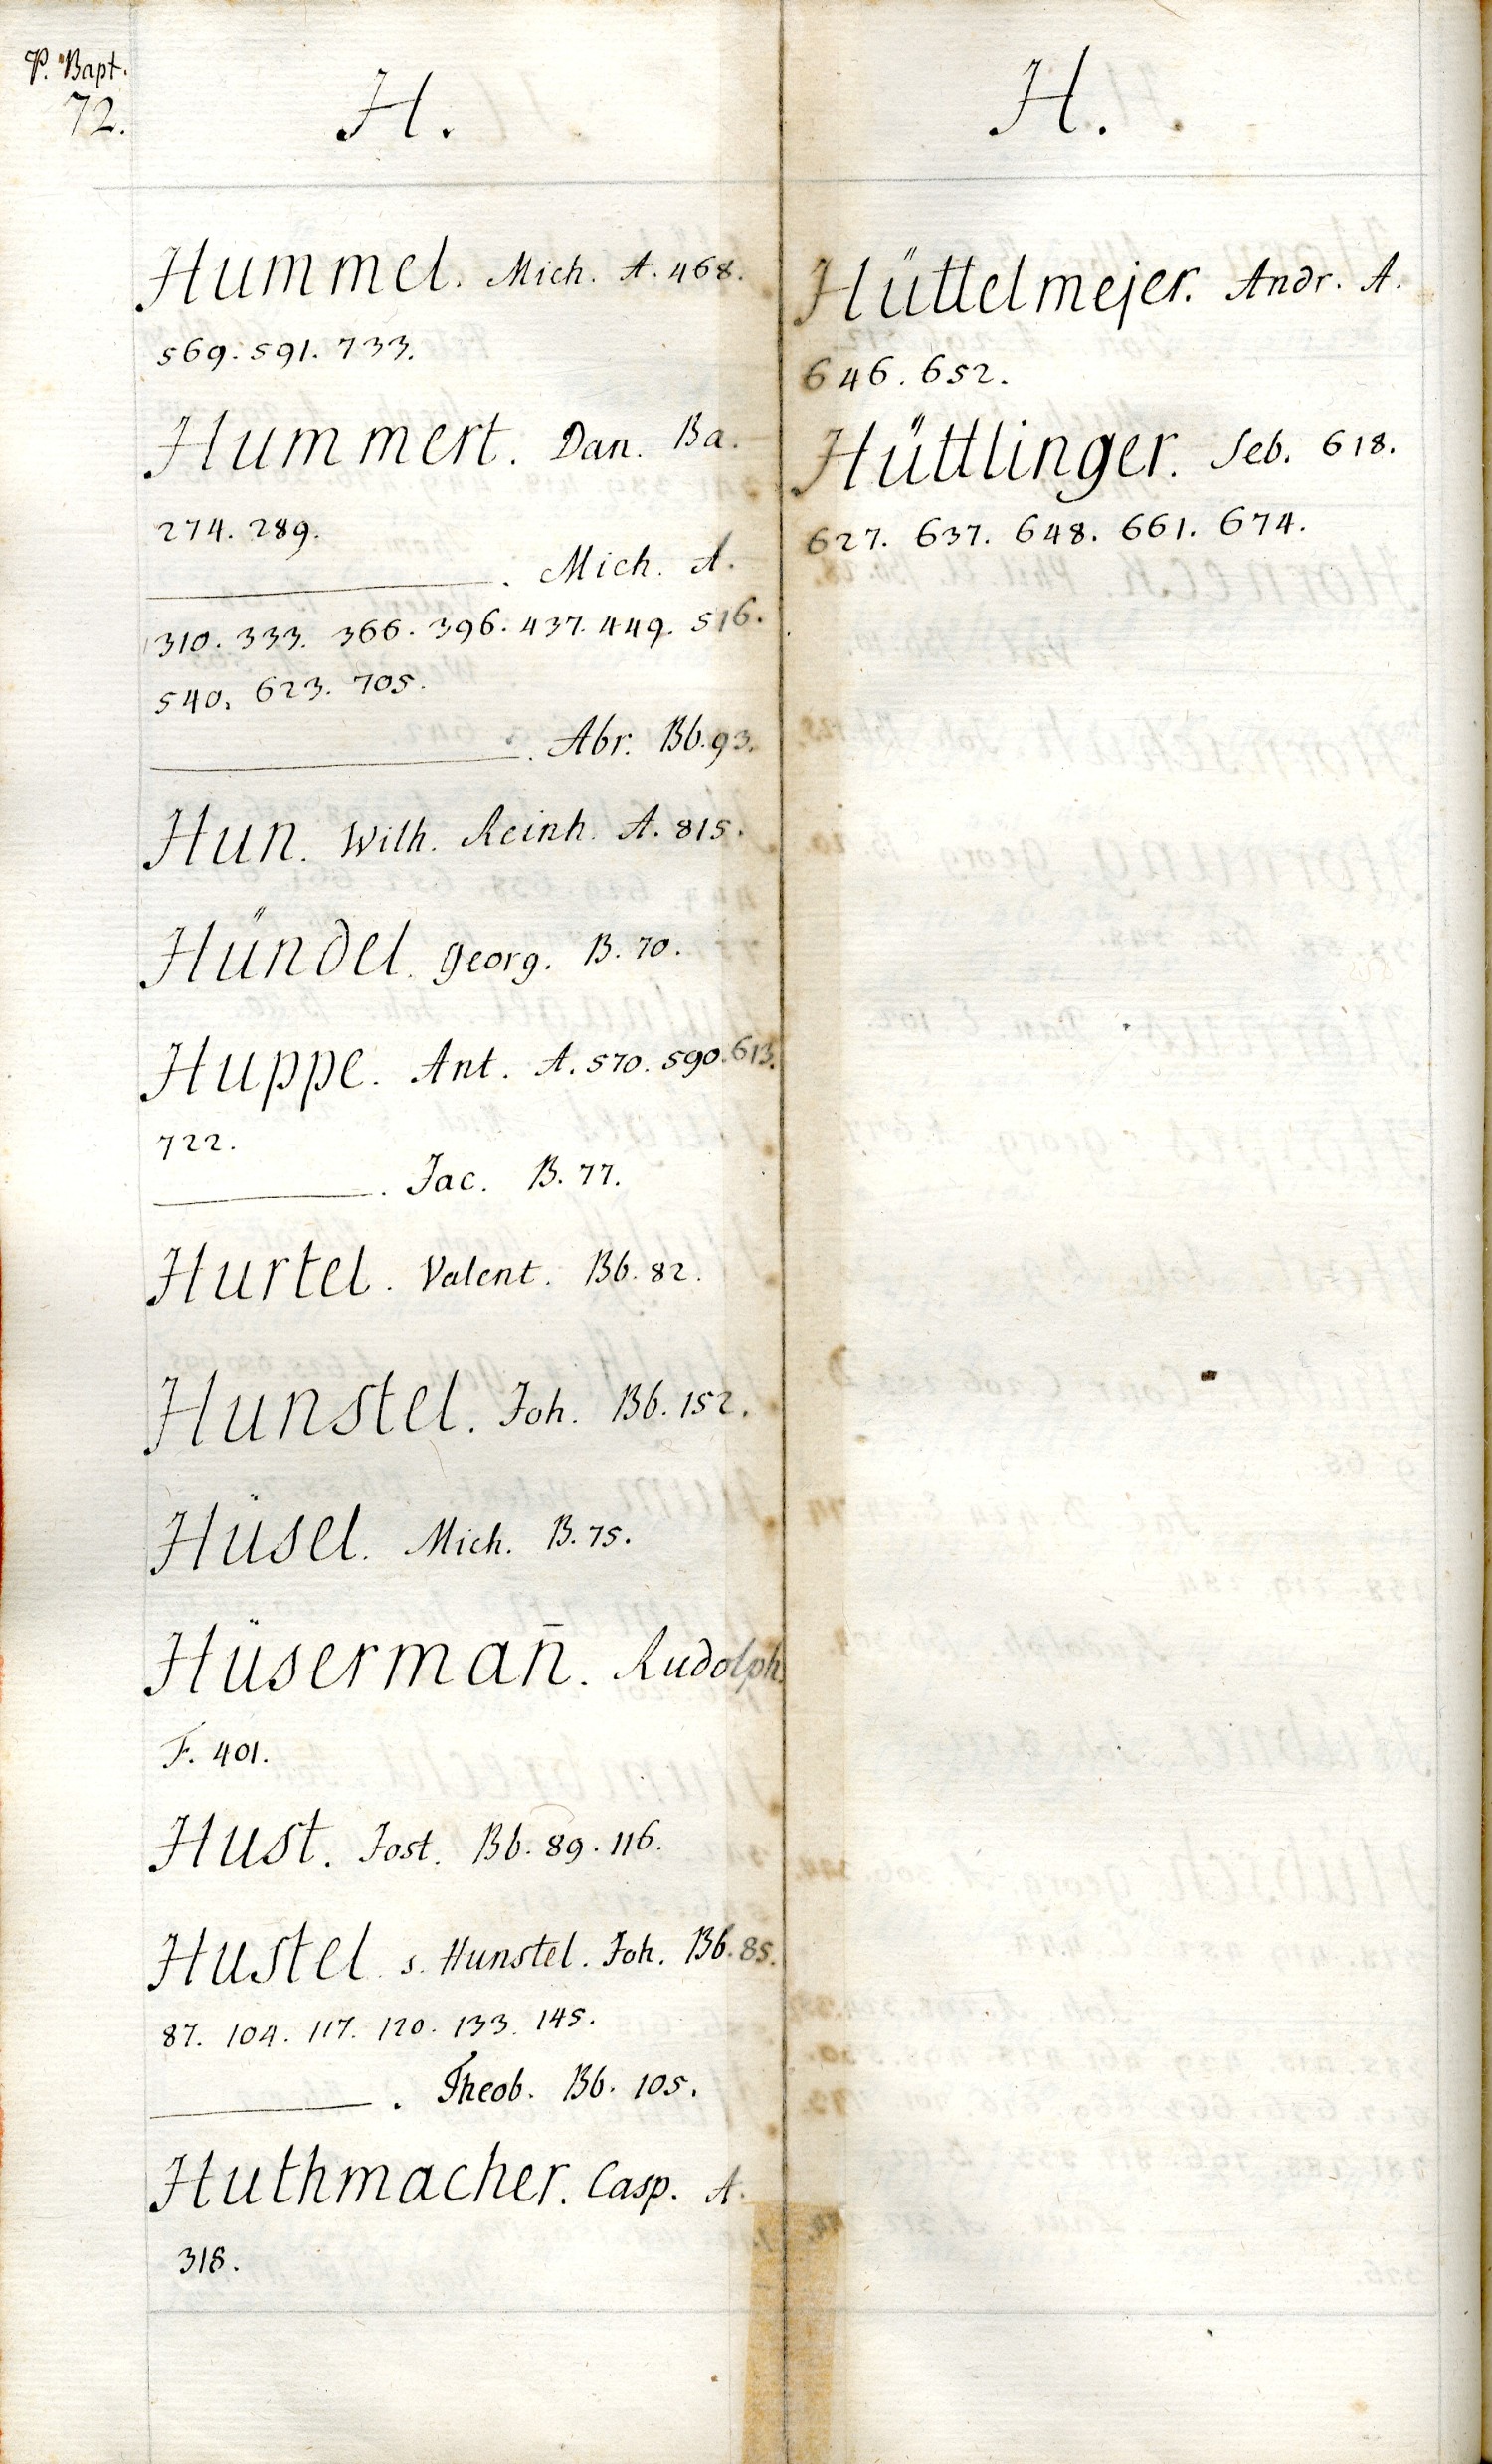 P. Bapt.
72.
H.
Hummel. Mich. A. 468.
569. 591. 733.
Hummert. Dan. Ba.
274. 289.
———. Mich. A.
310. 333. 366. 396. 437. 449. 516.
540. 623. 705.
———. Abr. Bb. 93.
Hun. Wilh. Reinh. A. 815.
Hündel. Georg. B. 70.
Huppe. Ant. A. 570. 590. 613.
722.
———. Jac. B. 77.
Hurtel. Valent. Bb. 82.
Hunstel. Joh. Bb. 152.
Hüsel. Mich. B. 75.
Hüsermañ. Rudolph.
F. 401.
Hust. Jost. Bb. 89. 116.
Hustel. s. Hunstel. Joh. Bb. 85.
87. 104. 117. 120. 133. 145.
———. Theob. Bb. 105.
Huthmacher. Casp. A.
318.
H.
Hüttelmejer. Andr. A.
646. 652.
Hüttlinger. Seb. 618.
627. 637. 648. 661. 674.